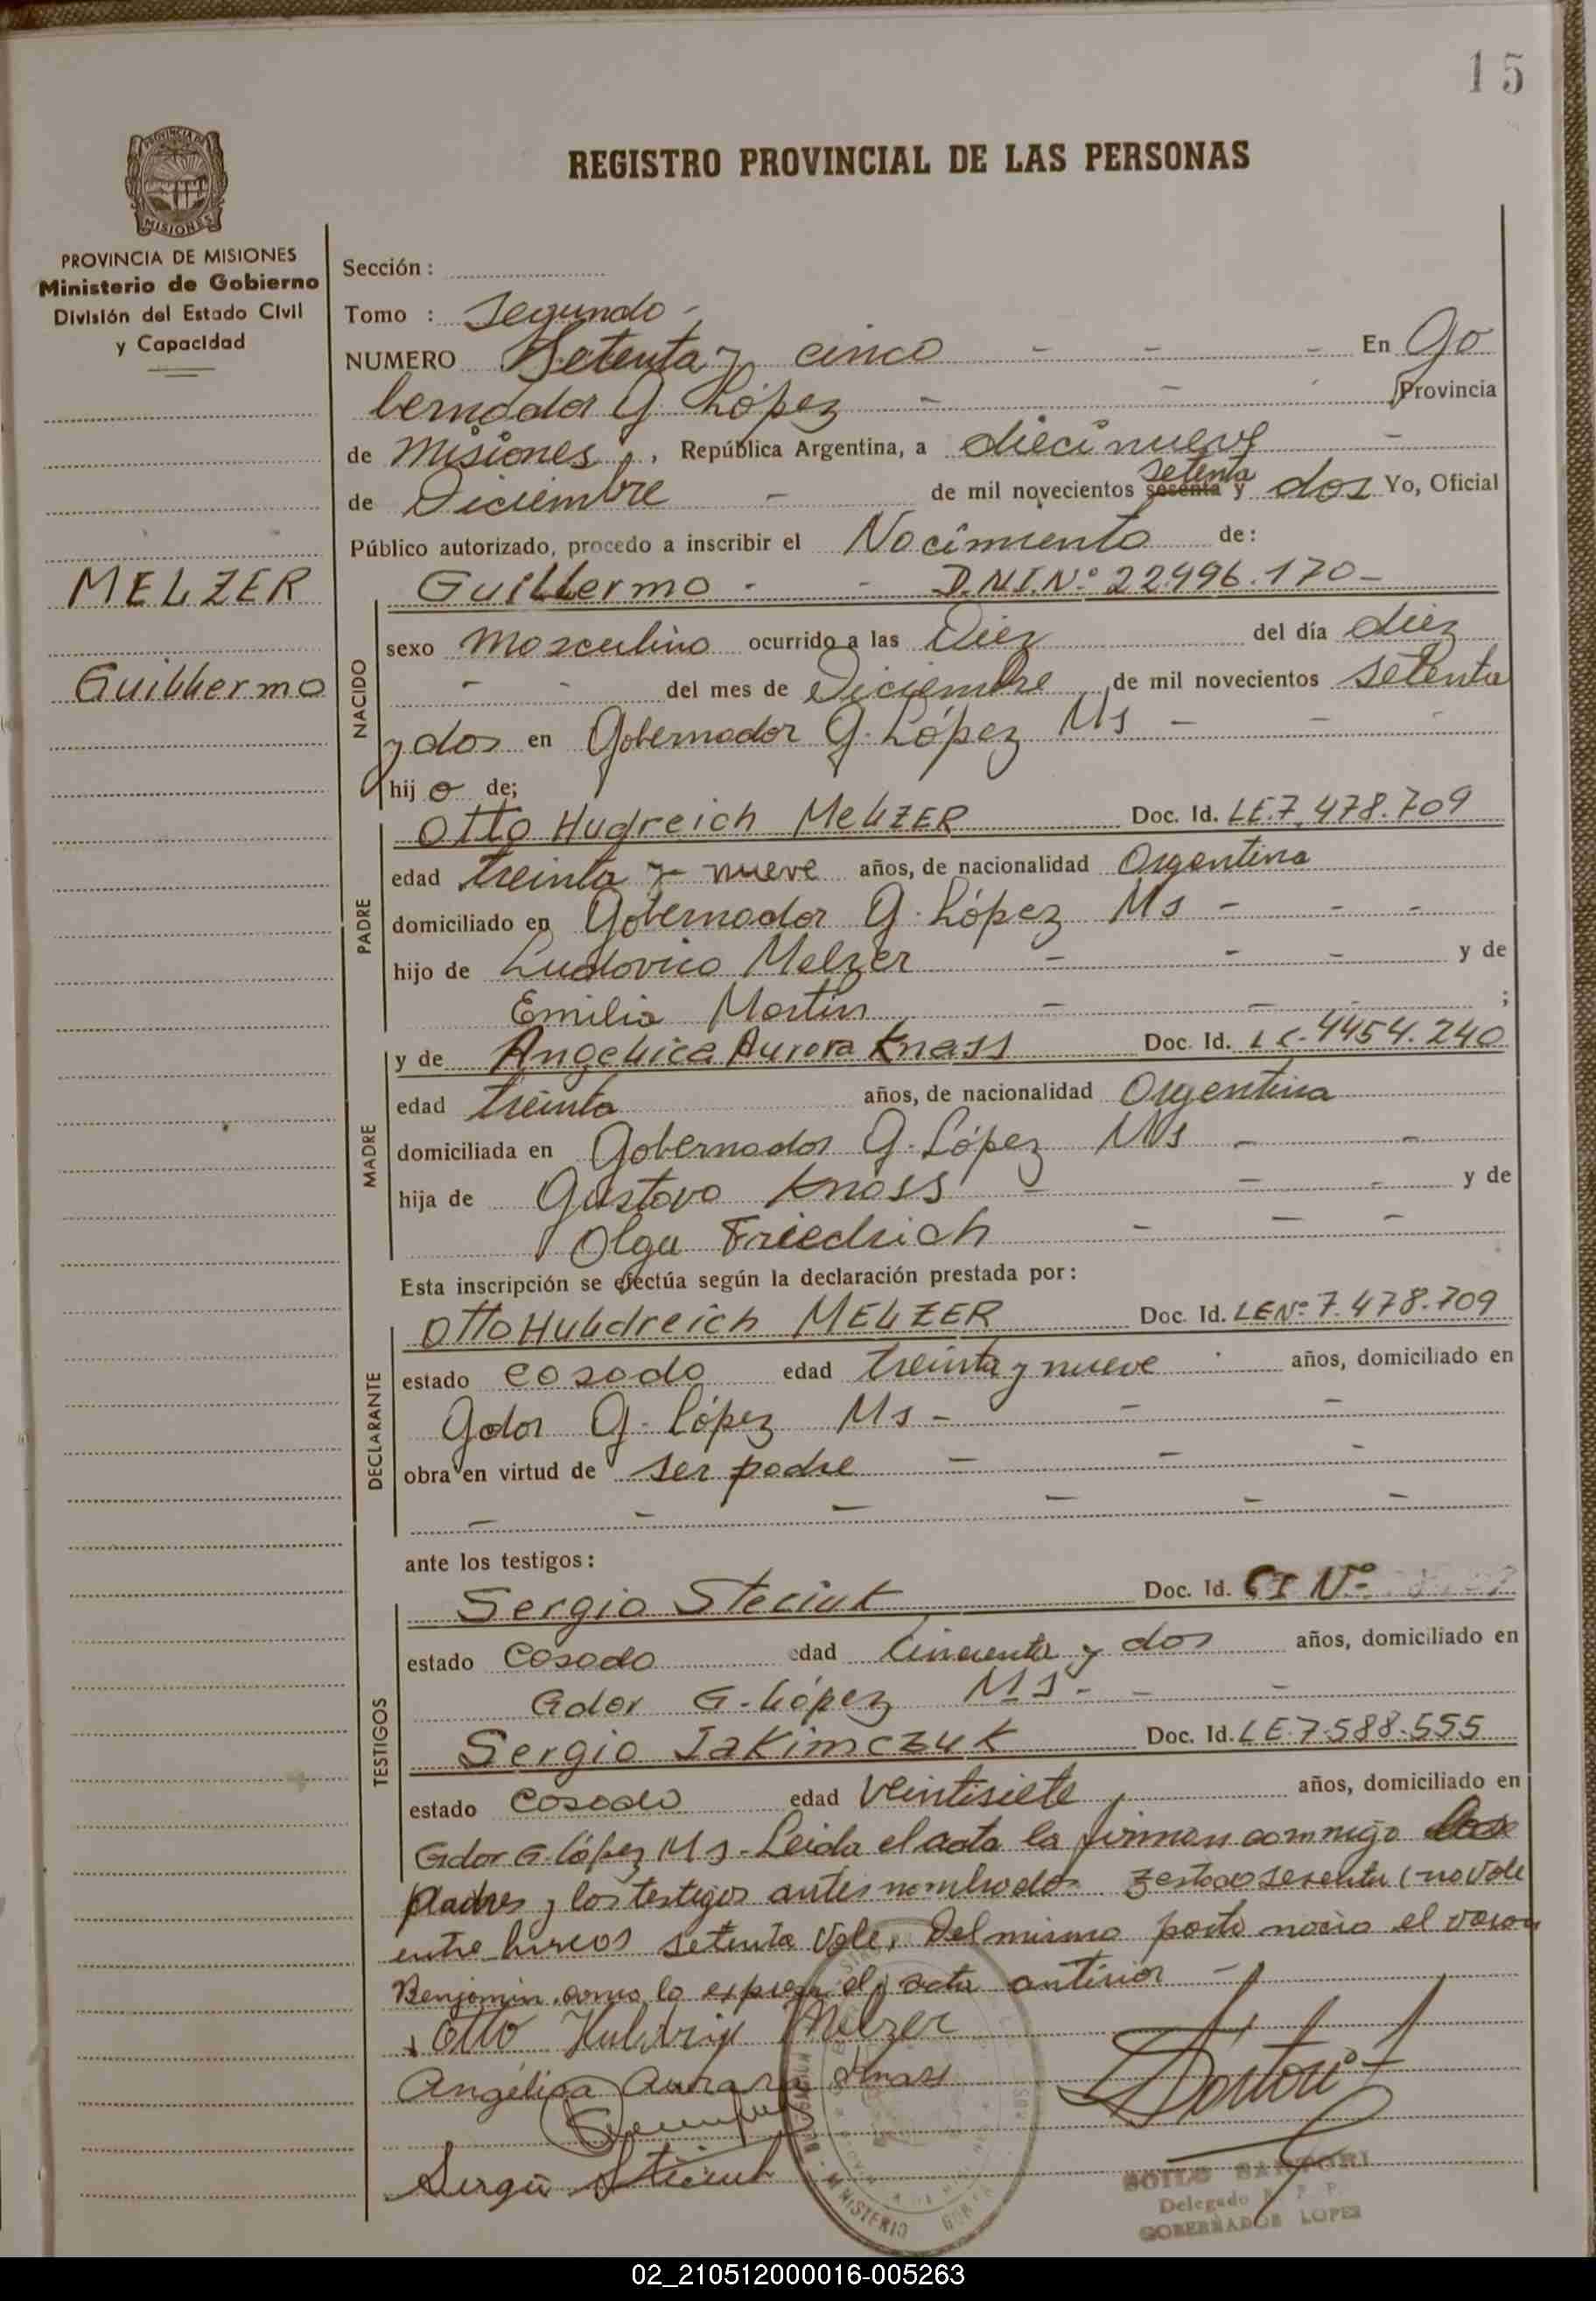 15
REGISTRO PROVINCIAL DE LAS PERSONAS
PROVINCIA DE MISIONES
MISIONES
PROVINCIA DE MISIONES
Ministerio de Gobierno
División del Estado Civil
y Capacidad
MELZER
Guillermo
Sección :
Tomo : Segundo -
NUMERO Setenta y cinco - - - En Go
bernador G. López - - Provincia
de Misiones, República Argentina, a diecinueve -
setenta
de Diciembre - de mil novecientos sesenta y dos Yo, Oficial
Público autorizado, procedo a inscribir el Nacimiento de:
Guillermo - - D.N.I.Nº 22.496.170-
NACIDO
sexo masculino ocurrido a las Diez del día diez
- - del mes de Diciembre de mil novecientos setenta
y dos en Gobernador G. López Ms - - -
hij o de;
PADRE
Otto Hudreich MELZER Doc. Id. LE.7.478.709
edad treinta y nueve años, de nacionalidad Argentina
domiciliado en Gobernador G. López Ms - - -
hijo de Ludovico Melzer - - - y de
Emilia Martin - - - ;
MADRE
y de Angelica Aurora Knass Doc. Id. LC.4454.240
edad treinta años, de nacionalidad Argentina
domiciliada en Gobernador G. López Ms - -
hija de Gustavo Knass - - - y de
Olga Friedrich - - -
Esta inscripción se efectúa según la declaración prestada por:
DECLARANTE
Otto Huldreich MELZER Doc. Id. LENº 7.478.709
estado casado edad treinta y nueve años, domiciliado en
Gdor G. López Ms - - -
obra en virtud de ser padre - - -
- - - - - -
ante los testigos:
TESTIGOS
Sergio Steciuk Doc. Id. CI Nº
estado casado edad Cincuenta y dos años, domiciliado en
Gdor G. López Ms - - -
Sergio Iakimczuk Doc. Id. LE.7.588.555
estado casado edad Veintisiete años, domiciliado en
Gdor G. López Ms - Leida el acta la firman conmigo los
padres y los testigos antes nombrados. testado sesenta (no vale
entre lineas setenta Vale. Del mismo parto nacio el varon
Benjamin, como lo expresa el acta anterior -
Otto Huldrix Melzer
Angélica Aurora Knass
Sergio Steciuk
Sartori
MINISTERIO
SOILO SARTORI
Delegado R. P. P.
GOBERNADOR LOPEZ
02_210512000016-005263